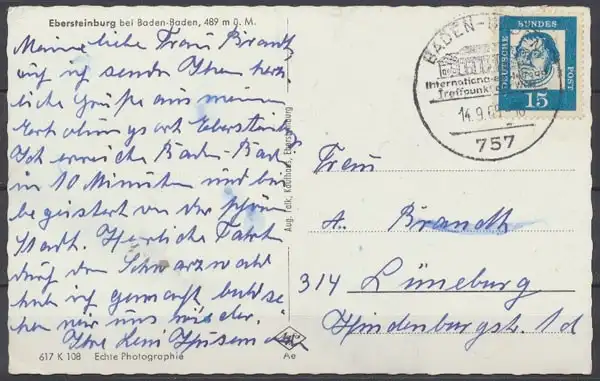 Ebersteinburg bei Baden-Baden, 489 m ü. M.
Meine liebe Frau Brandt
auch ich sende Ihnen herz
liche Grüße aus meinem
Erholungsort Ebersteinb
Ich erreiche Baden-Bad
in 10 Minuten und bin
begeistert von der schönen
Stadt. Herrliche Fahrt
durch den Schwarzwald
habe ich gemacht bald se
hen wir uns wieder.
Ihre Leni
617 K 108 Echte Photographie
Aug. Falk, Kaufhaus, Ebersteinburg
Ae
BADEN-
Internationaler
Treffpunkt
14.9.6
757
DEUTSCHE
BUNDES
POST
15
Frau
A. Brandt
314 Lüneburg
Hindenburgstr. 1d